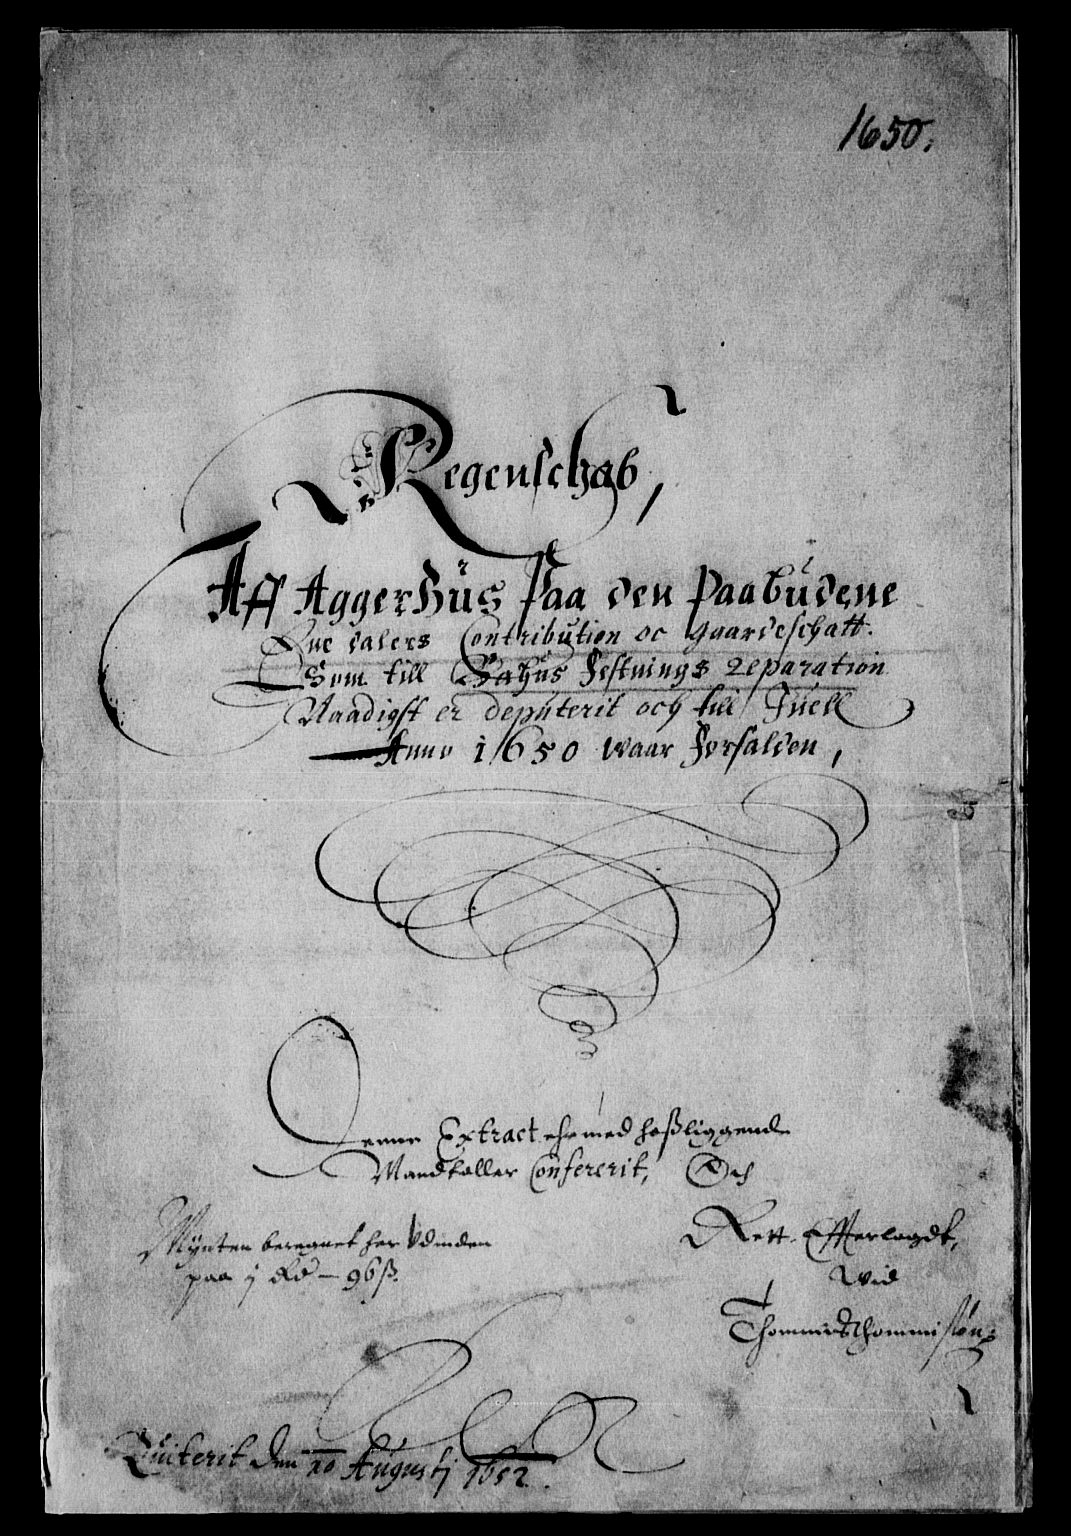 1650.
Regenschab,
Aff Aggerhüs Paa den Paabüdene
Sue dalers Contribution oc gaardeschatt.
Som till Bahüs Festnings Reparation
Naadigst er deputerit och till Juell
Anno 1650 waar Forfalden,
Denne Extract ehr med hoßliggende
Mandtaller Confererit, Och
Rett. Efferlagdt,
Wid
Thommes Thommisløn
Mÿnten beregnet her Vdinden
paa j Rd — 96 ß.
Quiterit den 20 Augustj 1652.